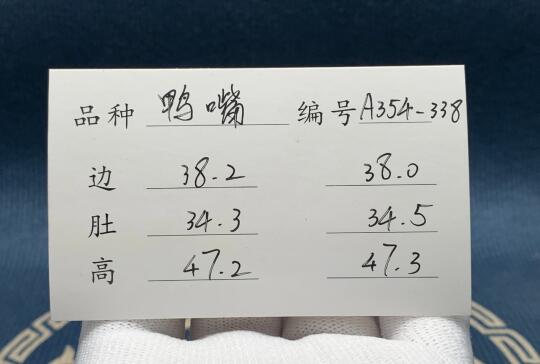 品种 鸭嘴 编号 A354-338
边 38.2 38.0
肚 34.3 34.5
高 47.2 47.3